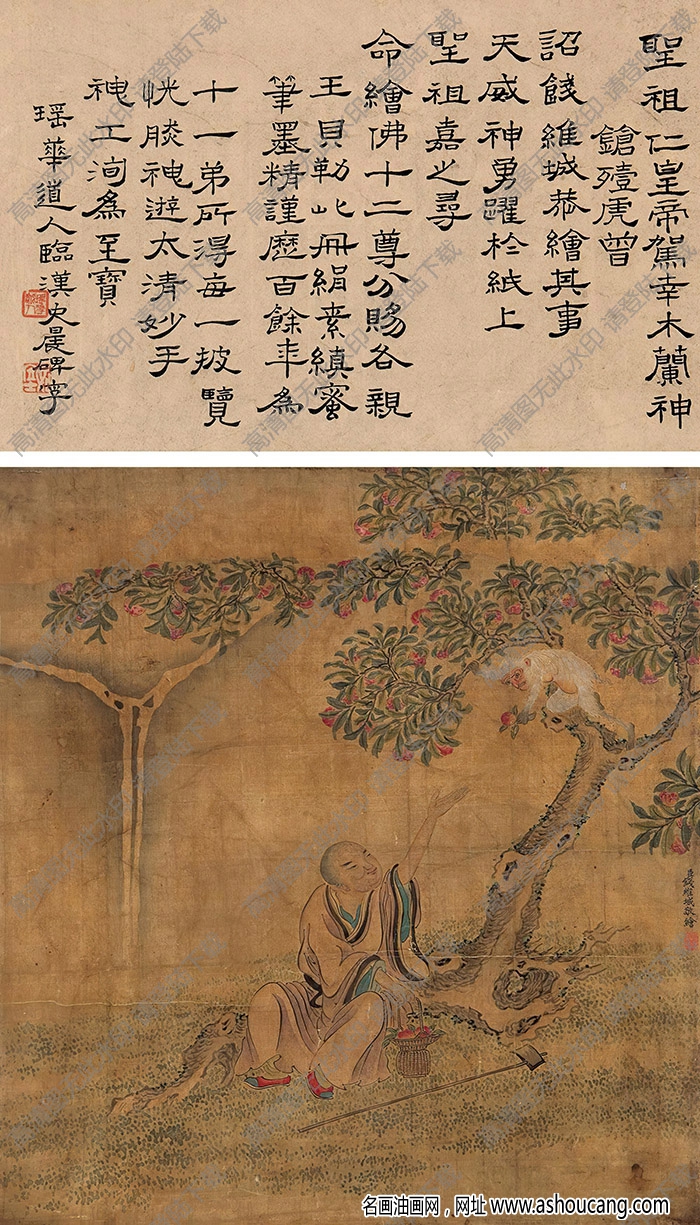 聖祖仁皇帝駕幸木蘭神
鎗殪虎曾
詔錢維城恭繪其事
天威神勇躍於紙上
聖祖嘉之尋
命繪佛十二尊分賜各親
王貝勒此冊絹素縝蜜
筆墨精謹歷百餘年為
十一弟所得每一披覽
恍然神遊太清妙手
神工洵為至寶
瑶華道人臨漢史晨碑字
臣錢維城敬繪
高清图无此水印 请登陆下载
名画油画网，网址 www.ashoucang.com